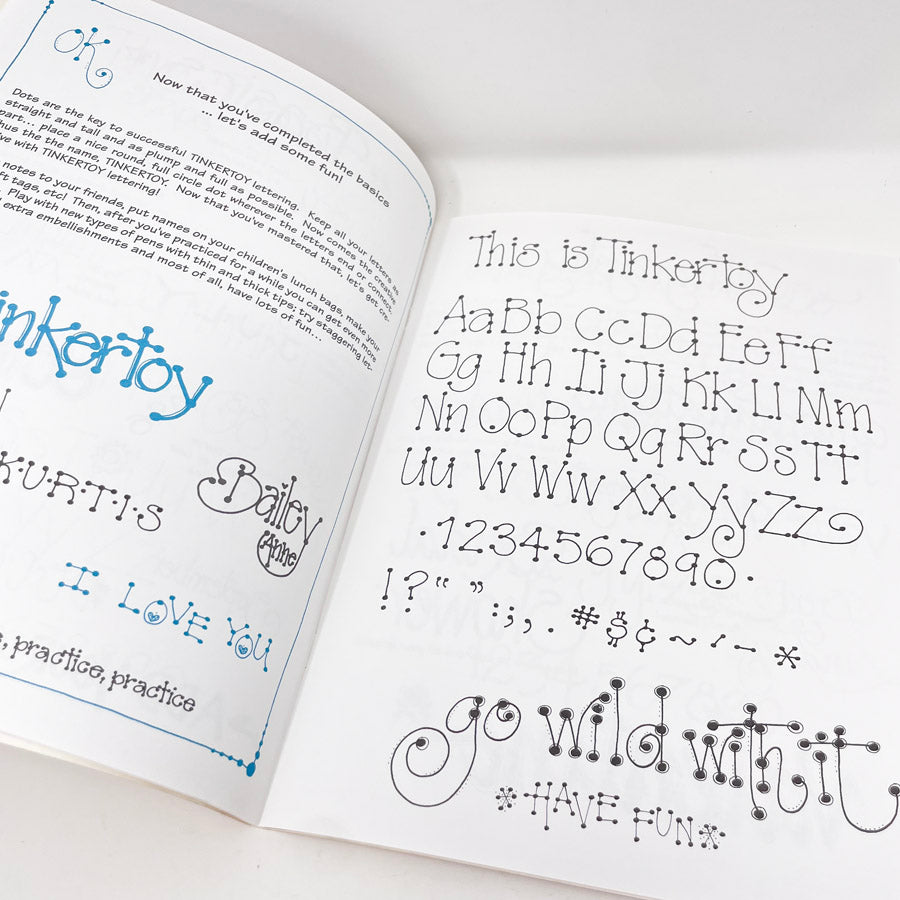 OK
Now that you've completed the basics
... let's add some fun!
Dots are the key to successful TINKERTOY lettering. Keep all your letters as
straight and tall and as plump and full as possible. Now comes the creative
part... place a nice round, full circle dot wherever the letters end or connect.
hus the the name, TINKERTOY. Now that you've mastered that, let's get cre-
ve with TINKERTOY lettering!
notes to your friends, put names on your children's lunch bags, make your
ft tags, etc! Then, after you've practiced for a while you can get even more
Play with new types of pens with thin and thick tips; try staggering let-
extra embellishments and most of all, have lots of fun...
inkertoy
K·U·R·T·I·S
Bailey
Anne
I LOVE YOU
, practice, practice
This is Tinkertoy
Aa Bb Cc Dd Ee Ff
Gg Hh Ii Jj Kk Ll Mm
Nn Oo Pp Qq Rr Ss Tt
Uu Vv Ww Xx Yy Zz
·1234567890·
!?“ ” : ; , . # $ ¢ ~ / – *
go wild with it
*HAVE FUN*